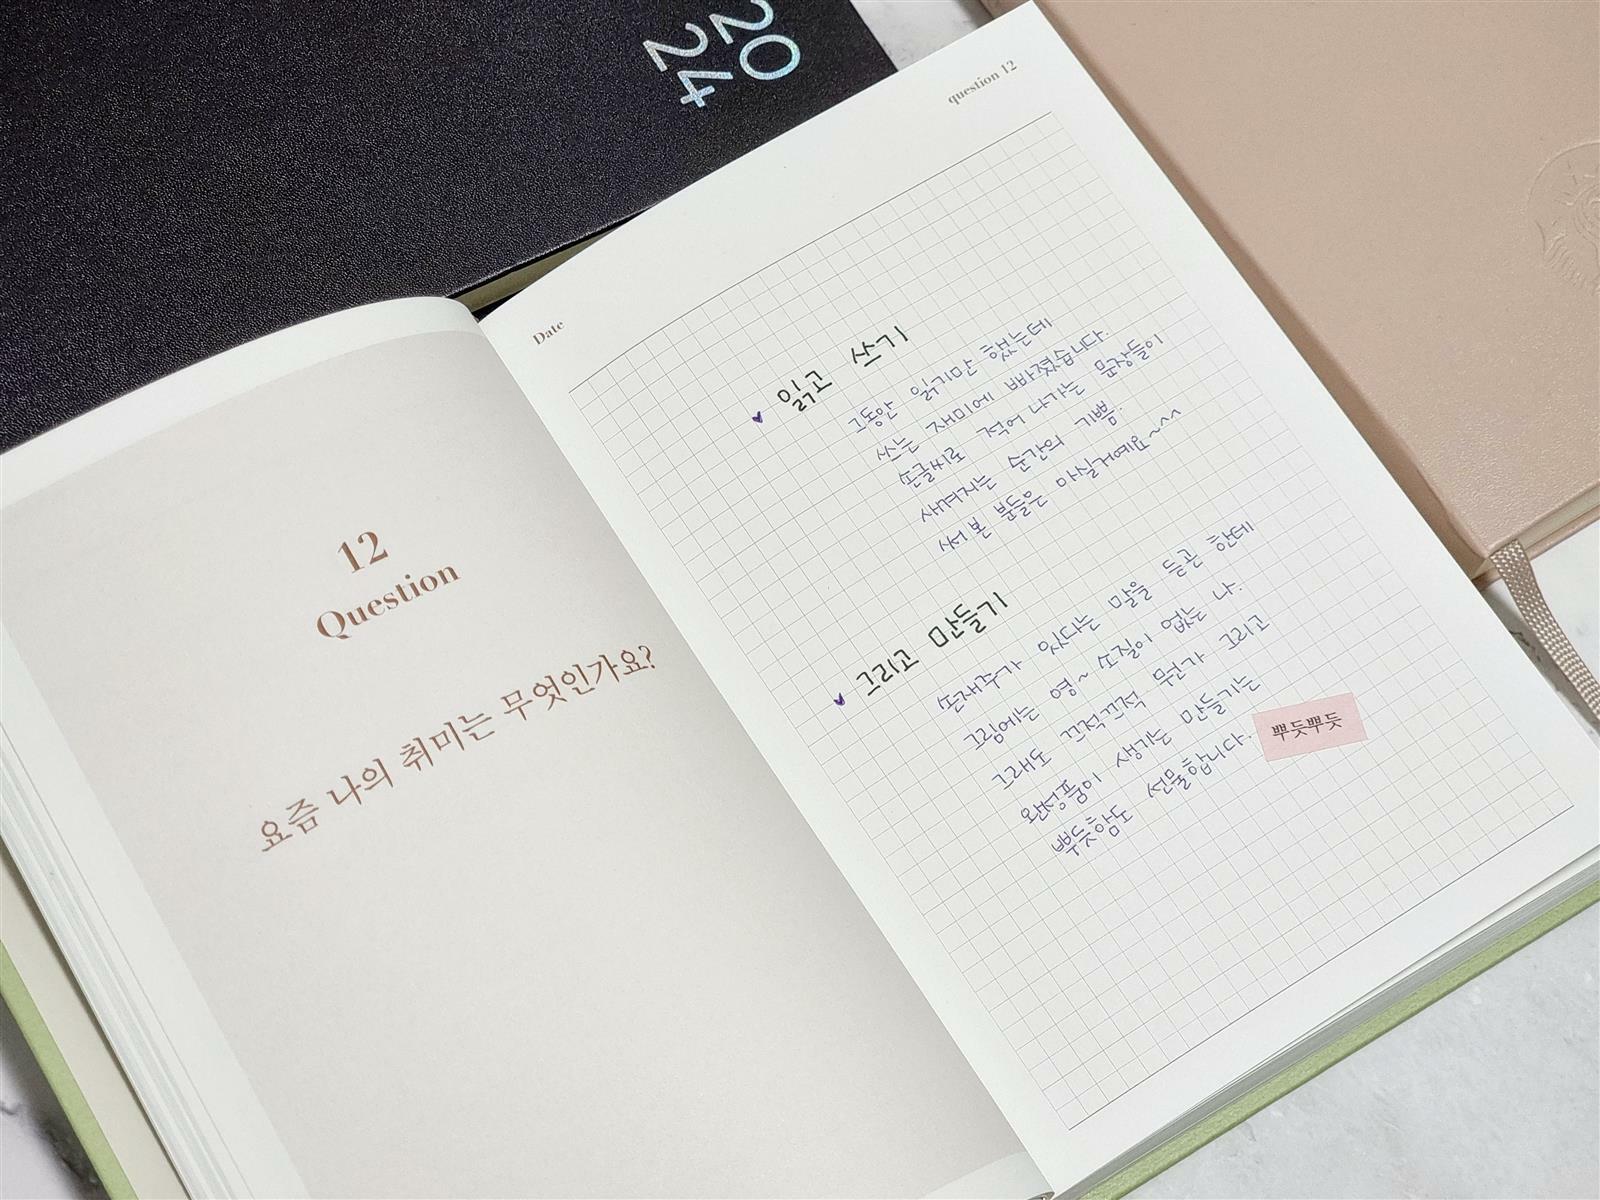 2024
12
Question
요즘 나의 취미는 무엇인가요?
Date
question 12
읽고 쓰기
그동안 읽기만 했는데
쓰는 재미에 빠져졌습니다.
손글씨로 적어 나가는 문장들이
새겨지는 순간의 기쁨.
써 본 분들은 아실거예요~~~
그리고 만들기
손재주가 있다는 말을 듣곤 했는데
그림에는 영~ 소질이 없는 나.
그래도 끄적끄적 무언가 그리고
완성품이 생기는 만들기는
뿌듯함도 선물합니다.
뿌듯뿌듯